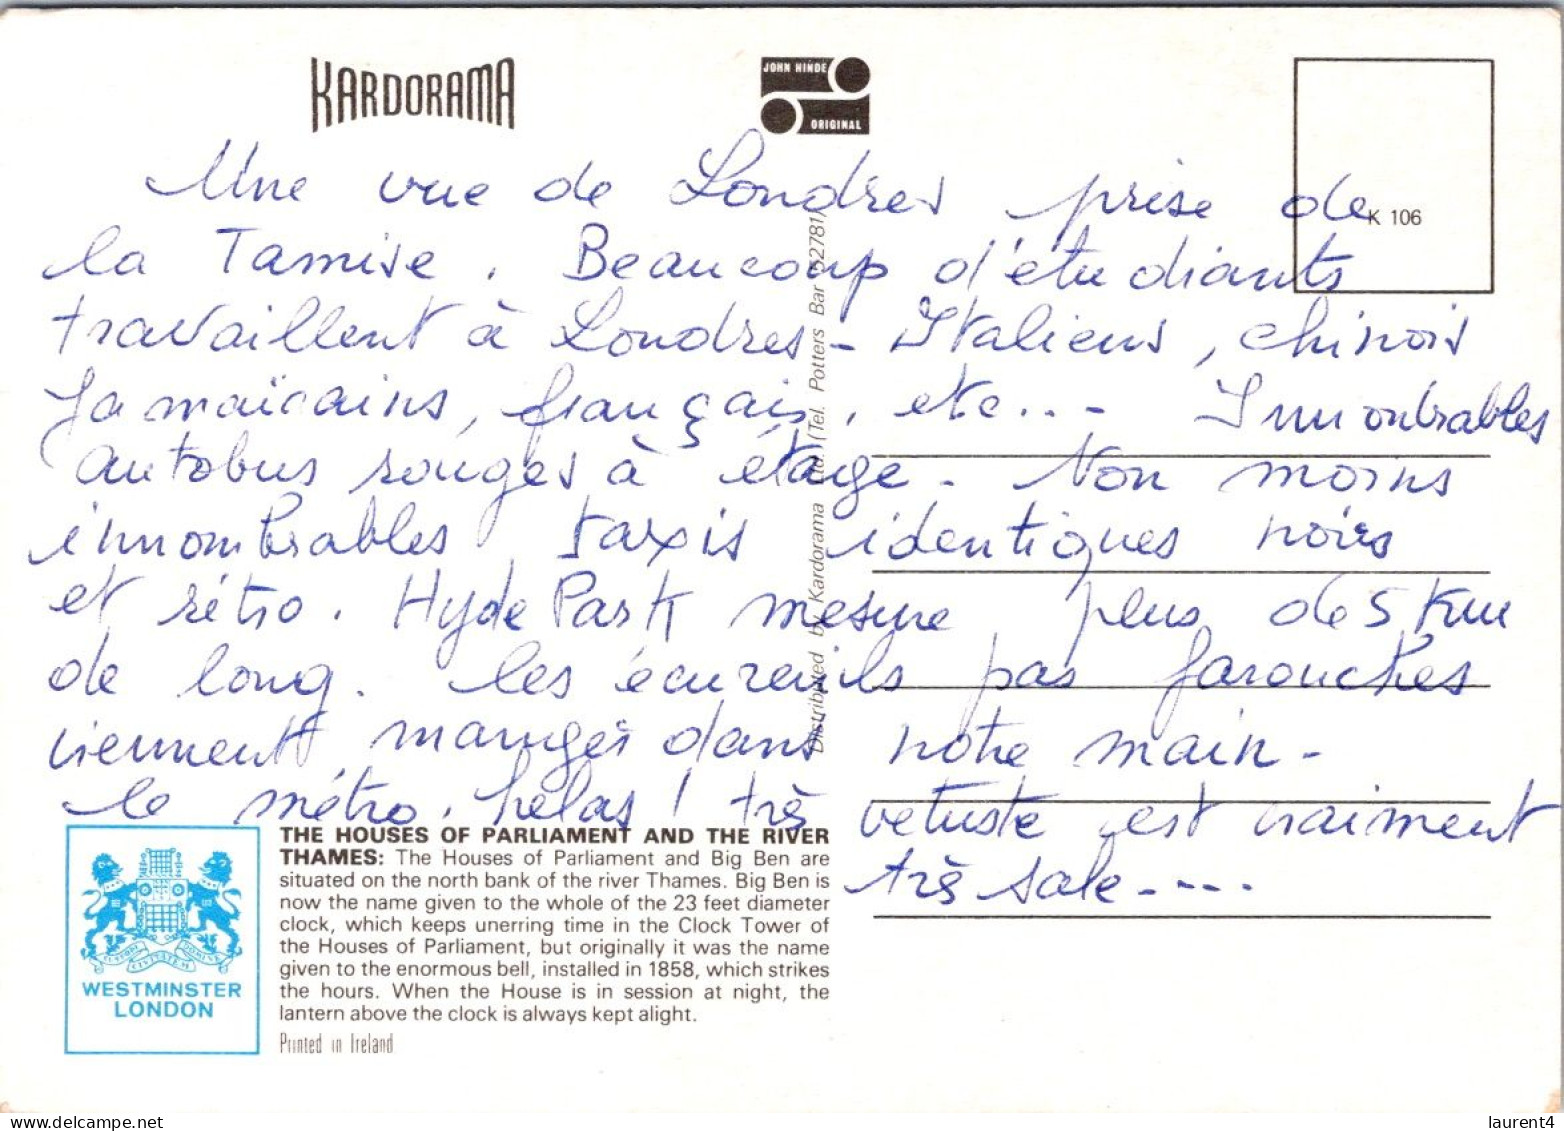 KARDORAMA
JOHN HINDE
ORIGINAL
K 106
Une vue de Londres prise de
la Tamise. Beaucoup d'étudiants
travaillent à Londres - Italiens, chinois
Jamaïcains, français, etc... - Innombrables
autobus rouges à étage - Non moins
innombrables taxis identiques noirs
et rétro. Hyde Park mesure plus de 5 Km
de long. les écureuils pas farouches
viennent manger dans notre main -
le métro, hélas ! très vetuste est vraiment
très sale - - - -
Distributed by Kardorama Ltd. (Tel. Potters Bar 52781)
THE HOUSES OF PARLIAMENT AND THE RIVER
THAMES: The Houses of Parliament and Big Ben are
situated on the north bank of the river Thames. Big Ben is
now the name given to the whole of the 23 feet diameter
clock, which keeps unerring time in the Clock Tower of
the Houses of Parliament, but originally it was the name
given to the enormous bell, installed in 1858, which strikes
the hours. When the House is in session at night, the
lantern above the clock is always kept alight.
Printed in Ireland
CUSTODI CIVITATEM DOMINE
WESTMINSTER
LONDON
laurent4